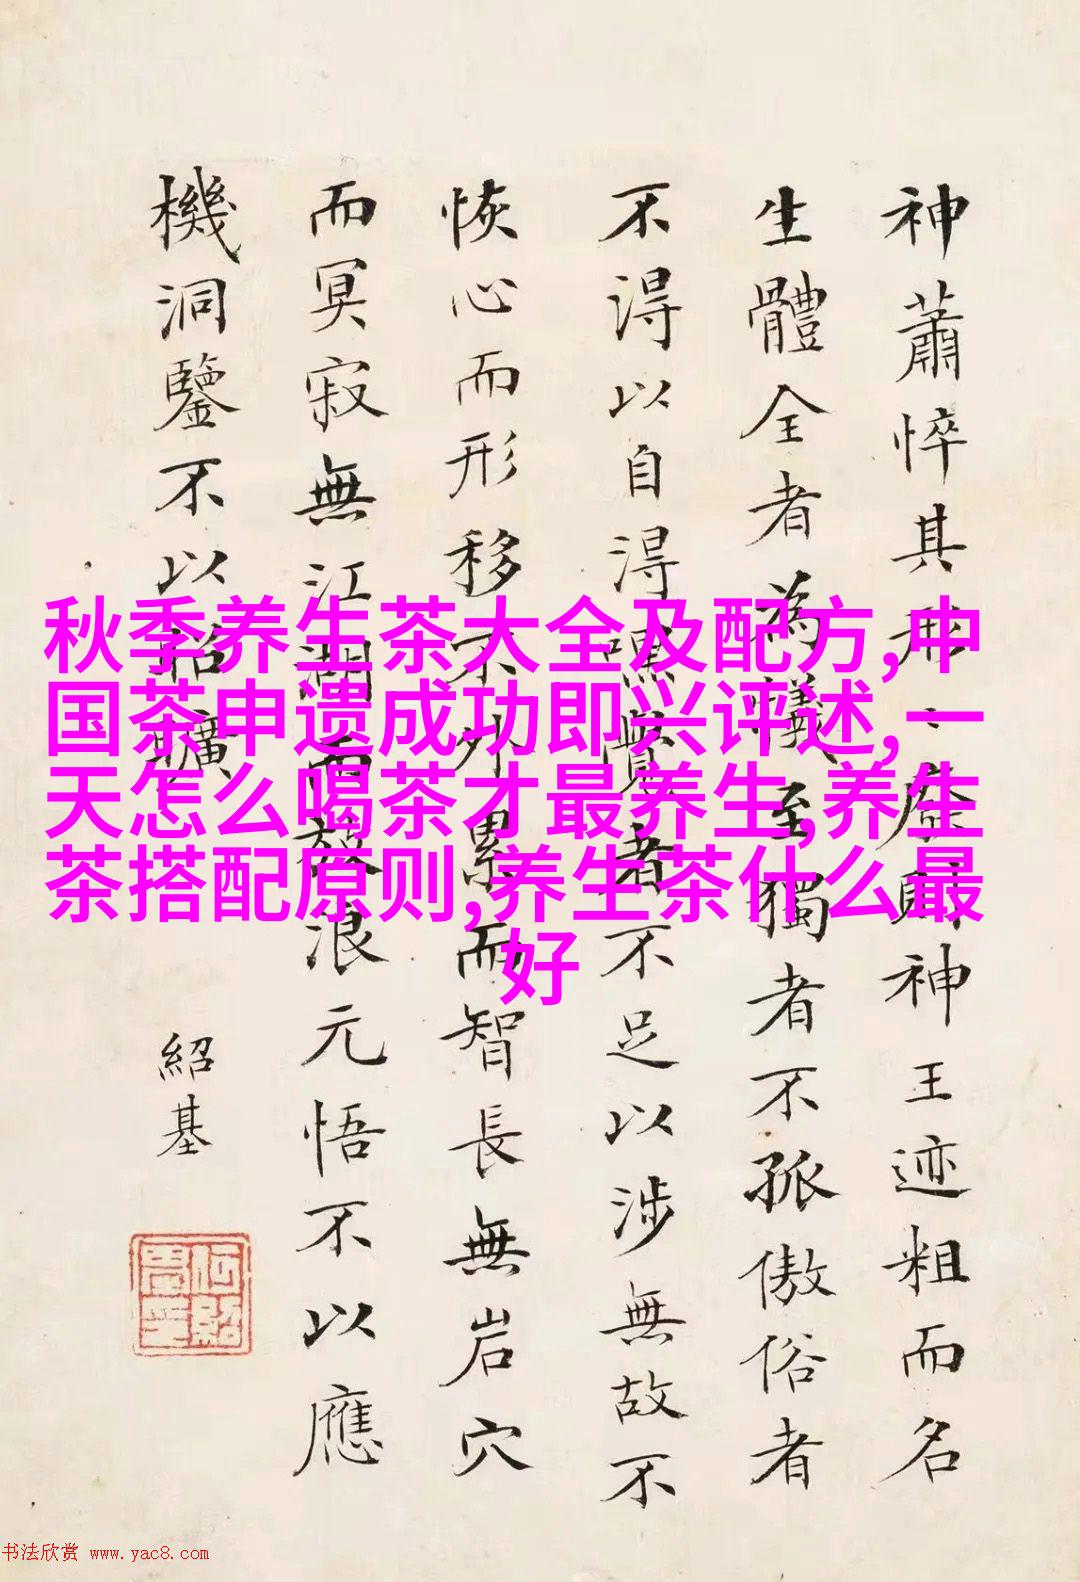 神蕭悴其形廢則神王迹粗而名
生體全者為犧至獨者不孤傲俗者
不得以自得嘿覺者不足以涉無故不
恢心而形移不外累而智長無岩穴
而冥寂無江湖而放浪元悟不以應
機洞鑒不以昭曠
紹基
何紹基印
秋季养生茶大全及配方,中
国茶申遗成功即兴评述,一
天怎么喝茶才最养生,养生
茶搭配原则,养生茶什么最
好
书法欣赏 www.yac8.com